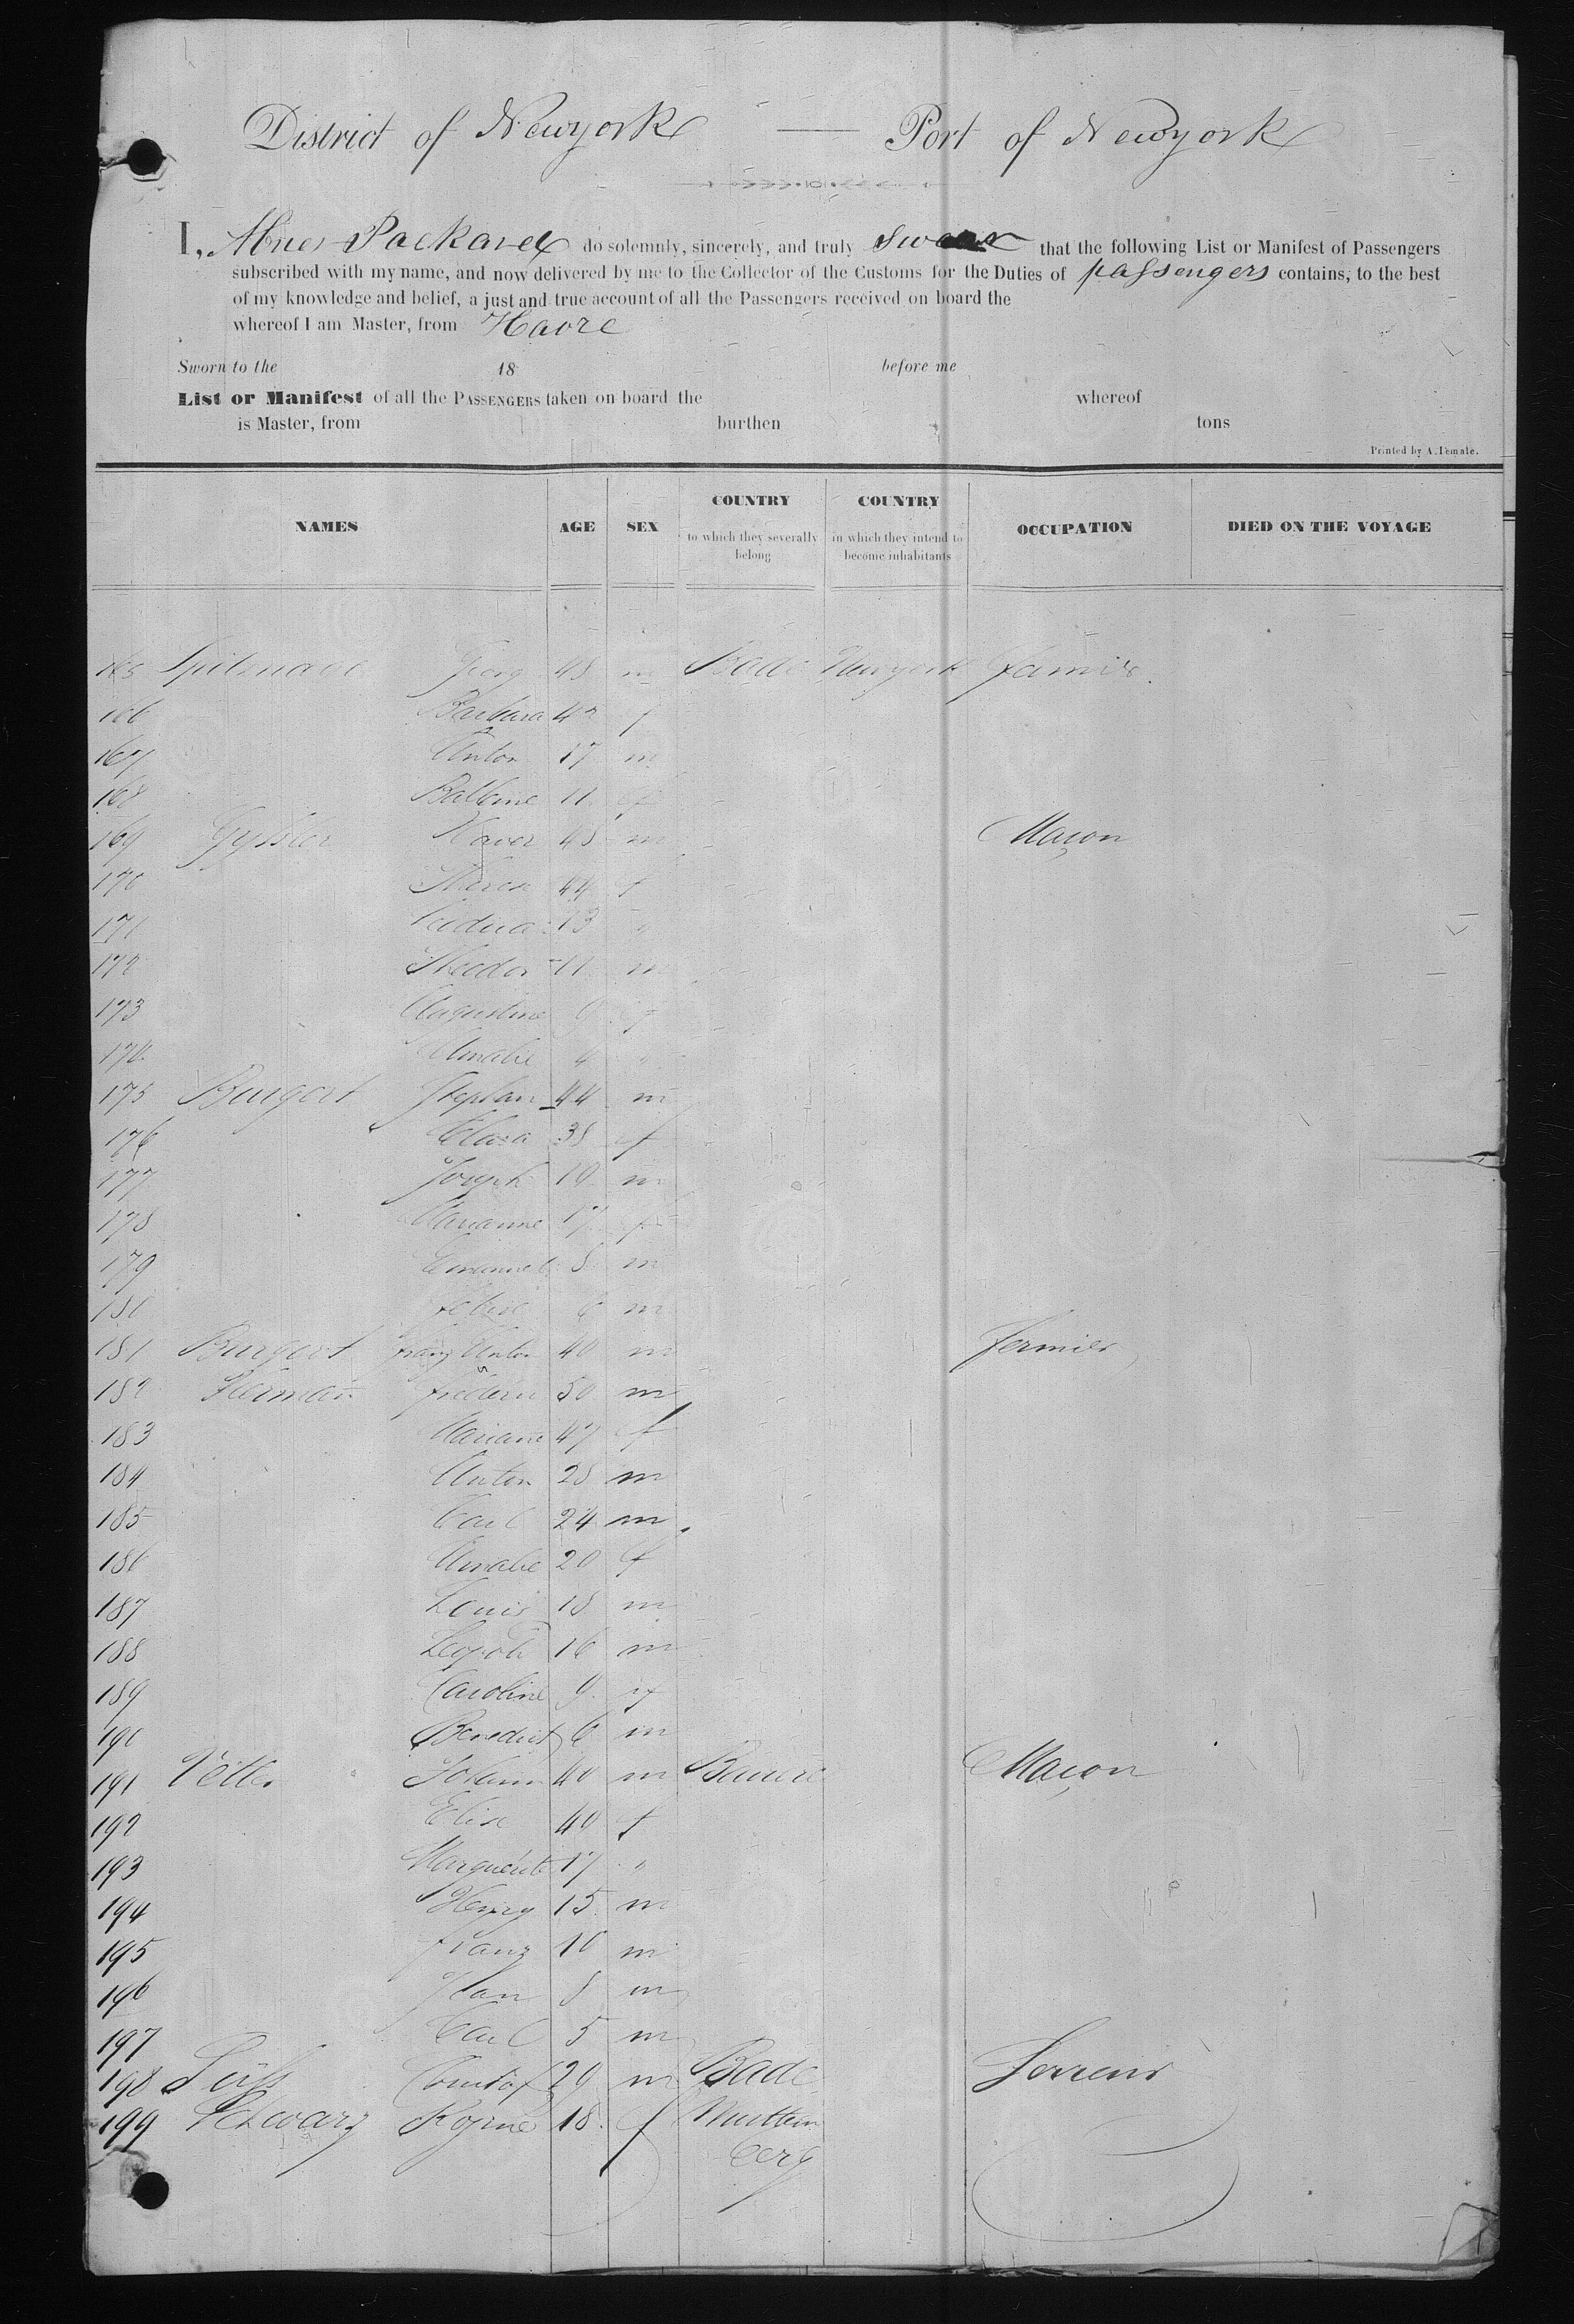 District of Newyork — Port of Newyork
I, Abner Packard do solemnly, sincerely, and truly swear that the following List or Manifest of Passengers
subscribed with my name, and now delivered by me to the Collector of the Customs for the Duties of passengers contains, to the best
of my knowledge and belief, a just and true account of all the Passengers received on board the
whereof I am Master, from Havre
Sworn to the 18 before me
List or Manifest of all the PASSENGERS taken on board the whereof
is Master, from burthen tons
Printed by A. Lemale.
NAMES AGE SEX COUNTRY to which they severally belong COUNTRY in which they intend to become inhabitants OCCUPATION DIED ON THE VOYAGE
165 Georg 45 m Bade Newyork
166 Barbara 42 f
167 Anton 17 m
168 Balbine 11 f
169 Gyssler Xaver 45 m Maçon
170 Therese 44 f
171 13 "
172 Theodor 11 m
173 Augustine 9 f
174 Amalie 4 "
175 Burgert Stephan 44 m
176 Clara 38 f
177 Joseph 19 m
178 Marianne 17 f
179 Emanuel 8 m
180 6 m
181 Burgert Franz Anton 40 m fermier
182 50 m
183 Mariane 47 f
184 Anton 28 m
185 Carl 24 m
186 Amalie 20 f
187 Louis 18 m
188 Leopold 16 m
189 Caroline 9 f
190 Benedict 6 m
191 Vetter Johann 40 m Baviere Maçon
192 Elise 40 f
193 Marguerite 17 "
194 Henry 15 m
195 Franz 10 m
196 8 m
197 Carl 5 m
198 29 m Bade
199 Schwarz 18 f Wurttem
berg